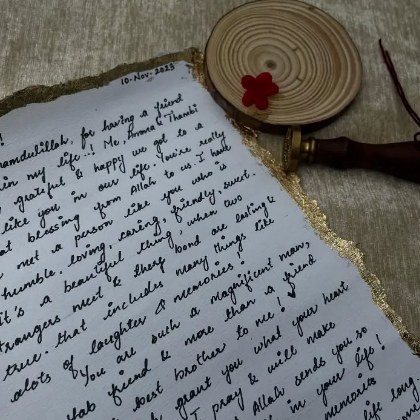 10-Nov-2023
!
hamdulillah, for having a friend
in my life..! Me, Amma & Thambi
grateful & happy we got to a
like you in our life. You're really
at blessing from Allah to us. I have
met a person like you who is
humble, loving, caring, friendly, sweet.
it's a beautiful thing, when two
strangers meet & there bond are lasting &
true. that includes many things like
alots of laughter & memories!
You are such a magnificent man,
lab friend & more than a friend
best brother to me!
grant you what your heart
I pray & will make
Allah sends you so
in your life!
memories
life long